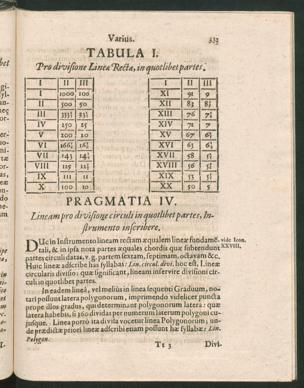 Varius. 333
TABULA I.
Pro divisione Lineæ Rectæ, in quotlibet partes.
I II III
I 1000 100
II 500 50
III 333⅓ 33⅓
IV 250 25
V 200 20
VI 166⅔ 16⅔
VII 143 14
VIII 125 12
IX 111 11
X 100 10
I II III
XI 91 9
XII 83 8
XIII 76 7
XIV 71 7
XV 67 6
XVI 63 6
XVII 58 5
XVIII 56 5
XIX 53 5
XX 50 5
PRAGMATIA IV.
Lineam pro divisione circuli in quotlibet partes, In-
strumento inscribere.
DUc in Instrumento lineam rectam æqualem lineæ fundamē-
tali, & in ipsa nota partes æquales chordis quæ subtendunt
partes circuli datas, v. g. partem sextam, septimam, octavam &c.
Huic lineæ adscribe has syllabas: Lin. circul. divis. hoc est, Lineæ
circularis divisio: quæ significant, lineam inservire divisioni cir-
culi in quotlibet partes.
vide Icon.
XXVIII.
In eadem lineâ, vel melius in linea sequenti Graduum, no-
tari possunt latera polygonorum, imprimendo videlicet puncta
prope illos gradus, qui determinant polygonorum latera: quæ
latera habebis, si 360 dividas per numerum laterum polygoni cu-
jusque. Linea porrò ita divisa vocetur Linea Polygonorum; un-
de prædictæ priori lineæ adscribi etiam possunt hæ syllabæ: Lin.
Polygon.
Tt 3 Divi-